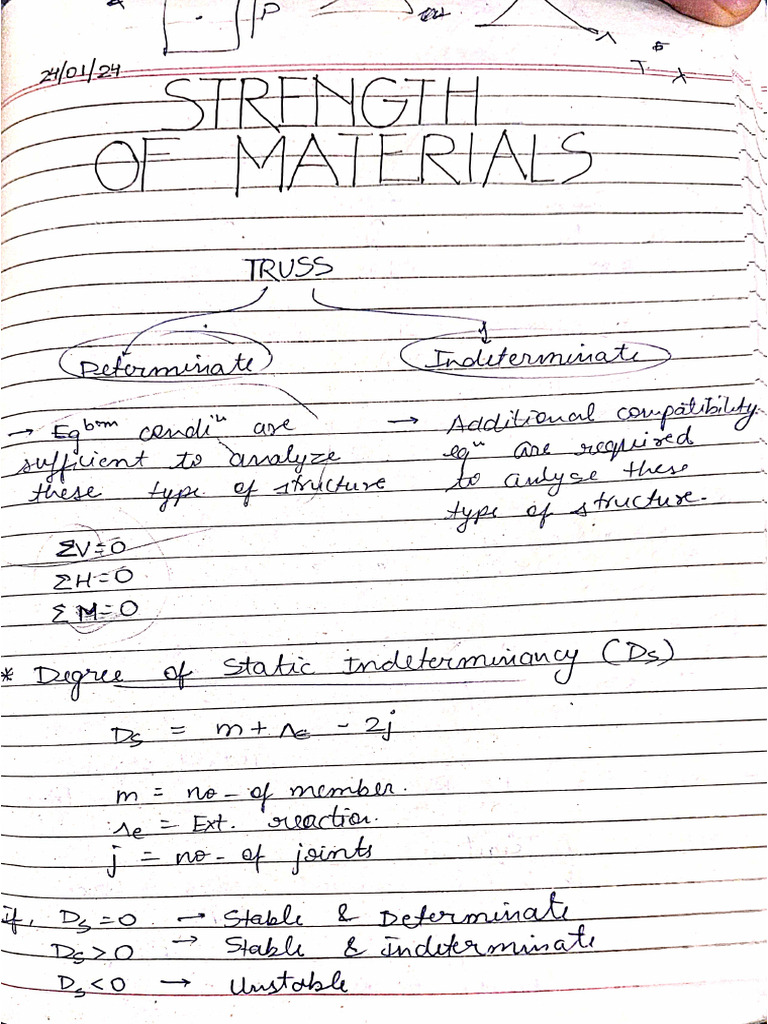 P
24/01/24
STRENGTH
OF MATERIALS
TRUSS
Determinate
Indeterminate
→ Eqbrm condin are
sufficient to analyze
these type of structure
→ Additional compatibility
eqn are required
to anlyse these
type of structure.
ΣV=0
ΣH=0
ΣM=0
* Degree of Static Indeterminancy (Ds)
Ds = m + re - 2j
m = no. of member.
re = Ext. reaction.
j = no. of joints
if, Ds=0 → Stable & Determinate
Ds>0 → Stable & Indeterminate
Ds<0 → Unstable